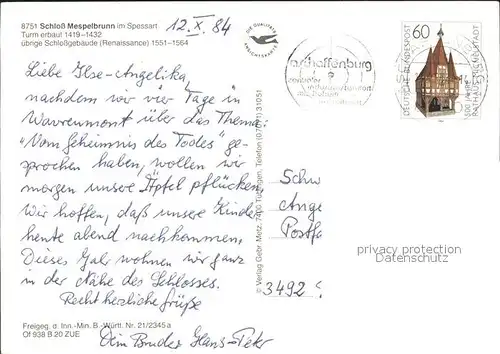 8751 Schloß Mespelbrunn im Spessart
Turm erbaut 1419–1432
übrige Schloßgebäude (Renaissance) 1551–1564
12.X.84
DIE QUALITÄTS
ANSICHTSKARTE
aschaffenburg
60
DEUTSCHE BUNDESPOST
500 JAHRE
RATHAUS MICHELSTADT
Liebe Ilse-Angelika,
nachdem wir vier Tage in
Wavreumont über das Thema:
"Vom Geheimnis des Todes" ge-
sprochen haben, wollen wir
morgen unsere Äpfel pflücken.
Wir hoffen, daß unsere Kinder
heute abend nachkommen.
Dieses Jahr wohnen wir ganz
in der Nähe des Schlosses.
Recht herzliche Grüße
Dein Bruder Hans-Peter
© Verlag Gebr. Metz, 7400 Tübingen, Telefon (07071) 31051
Schw
Ange
Postfa
3492
privacy protection
Datenschutz
Freigeg. d. Inn.-Min. B.-Württ. Nr. 21/2345 a
Of 938 B.20 ZUE